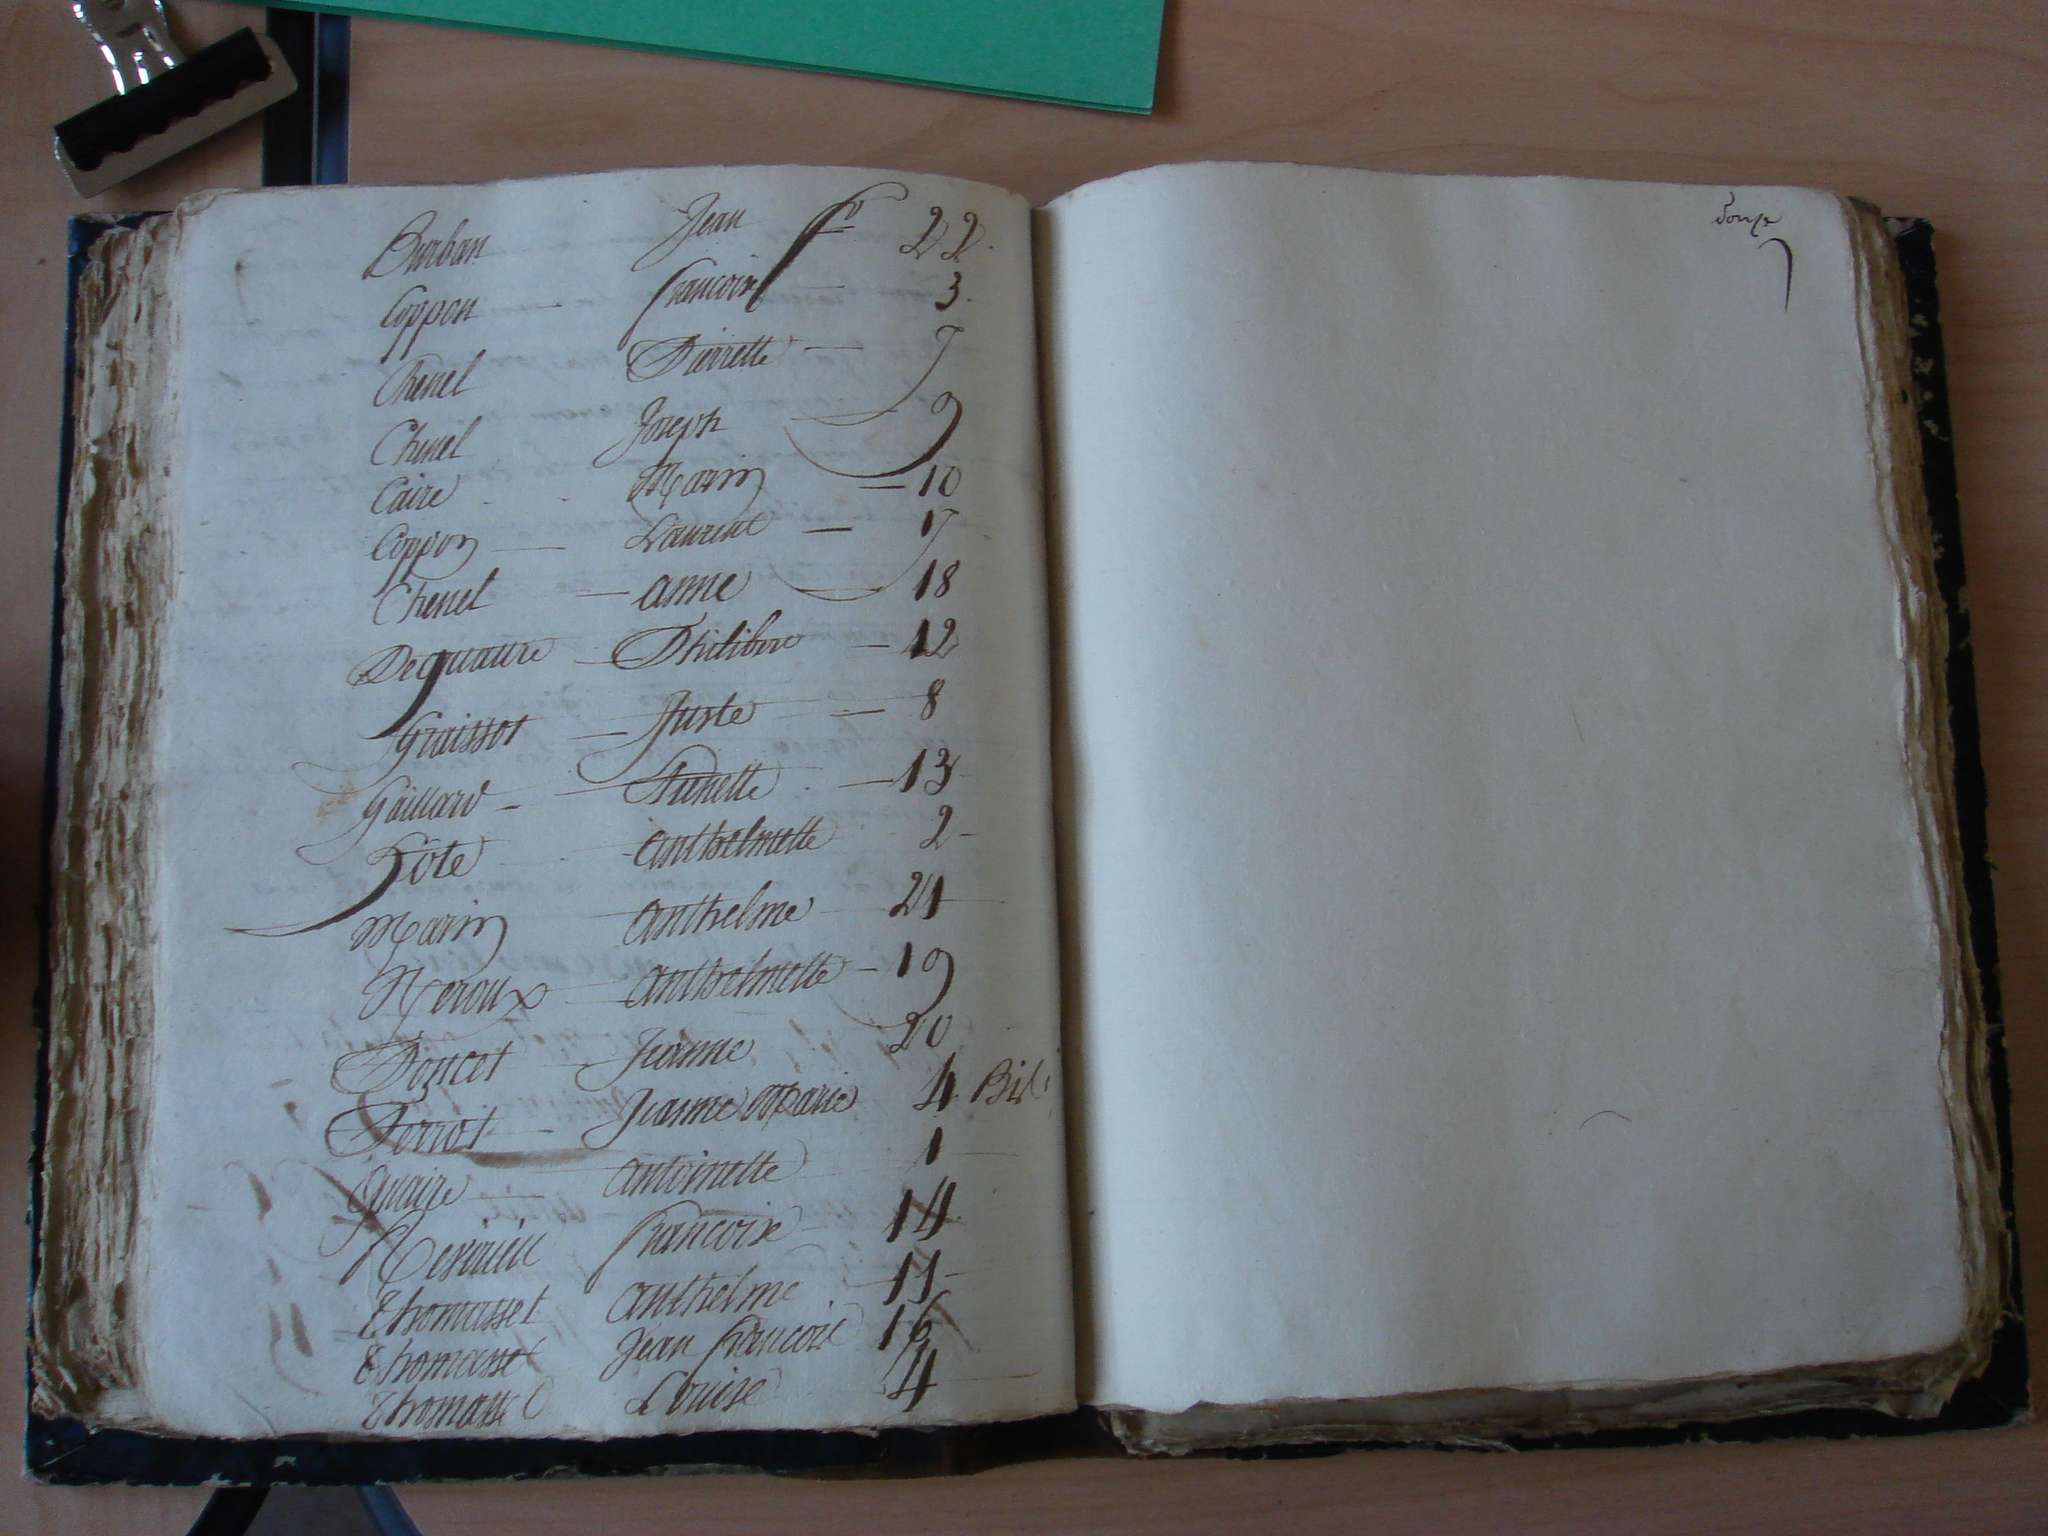 Burban Jean fo 22.
Coppon francoise 3.
Chenel Pierrette 7
Chenel Joseph 9
Caire Marin 10
Coppon Laurent 17
Chenel anne 18
Deguaure Philibere 12
Graissot Juste 8
Gaillard Nunette 13
Hote anthelmette 2
Marin anthelme 21
Neroux anthelmette 19
Poncet Jeanne 20
Perrot Jeanne Marie 4 Bis
Quaire antoinette 1
francoise 14
Thomasset anthelme 11
Thomasset Jean francois 16
Thomasse Louise 4
douze